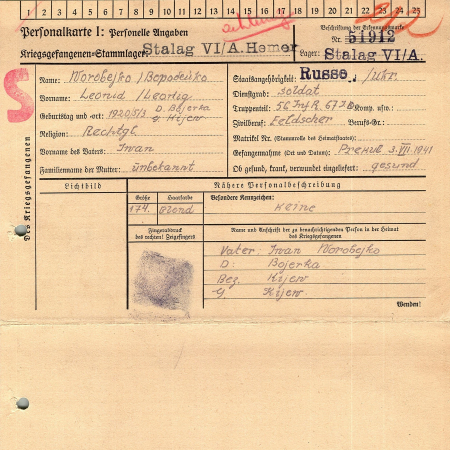 1 2 3 4 5 6 7 8 9 10 11 12 13 14 15 16 17 18 19 20 21 22 23 24 25
Personalkarte I: Personelle Angaben
Kriegsgefangenen-Stammlager: Stalag VI/A. Hemer
Beschriftung der Erkennungsmarke
Nr. 51912
Lager: Stalag VI/A.
Des Kriegsgefangenen
S
Name: Worobejko / Воробейко
Vorname: Leonid /
Geburtstag und -ort: 1920/5/3 D. Bojerka G. Kijew
Religion: Rechtgl.
Vorname des Vaters: Iwan
Familienname der Mutter: unbekannt
Staatsangehörigkeit: Russe / Ukr.
Dienstgrad: Soldat
Truppenteil: 56 Inf. R. Komp. usw.:
Zivilberuf: Feldscher Berufs-Gr.:
Matrikel Nr. (Stammrolle des Heimatstaates):
Gefangennahme (Ort und Datum): 3.VII.1941
Ob gesund, krank, verwundet eingeliefert: gesund
Lichtbild
Nähere Personalbeschreibung
Größe Haarfarbe Besondere Kennzeichen:
174. Blond Keine
Fingerabdruck
des rechten! Zeigefingers
Name und Anschrift der zu benachrichtigenden Person in der Heimat
des Kriegsgefangenen
Vater: Iwan Worobejko
D: Bojerka
Bez. Kijew
G. Kijew
Wenden!